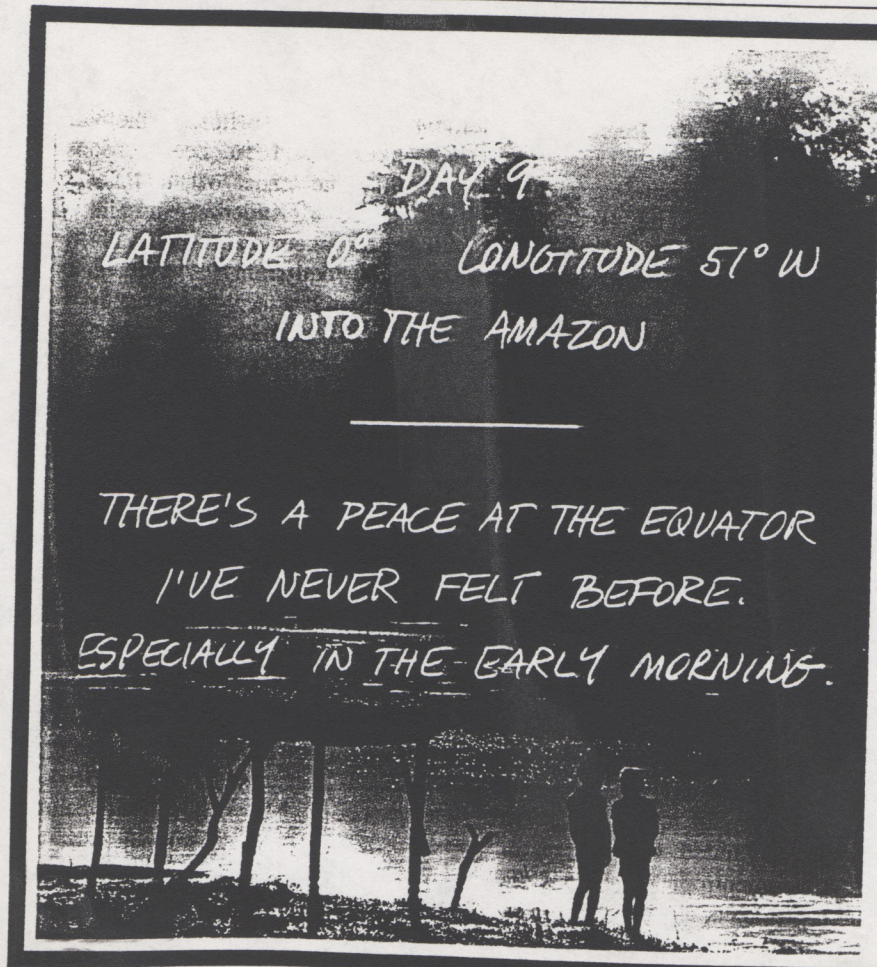 DAY 9
LATITUDE 0° LONGITUDE 51° W
INTO THE AMAZON
THERE'S A PEACE AT THE EQUATOR
I'VE NEVER FELT BEFORE.
ESPECIALLY IN THE EARLY MORNING.